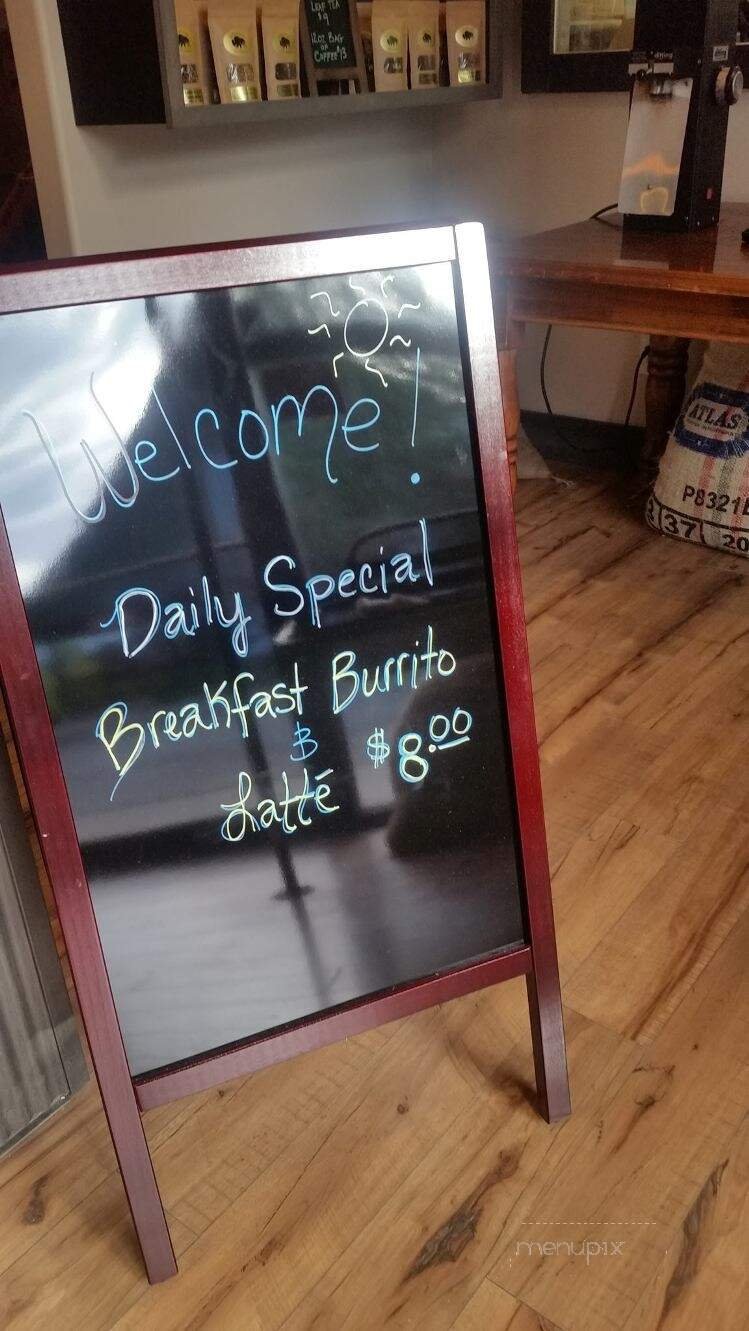 LEAF TEA
$9
12OZ BAG
OF
COFFEE $13
Welcome!
Daily Special
Breakfast Burrito
&
Latté $8.00
ATLAS
P8321
37
20
menupix